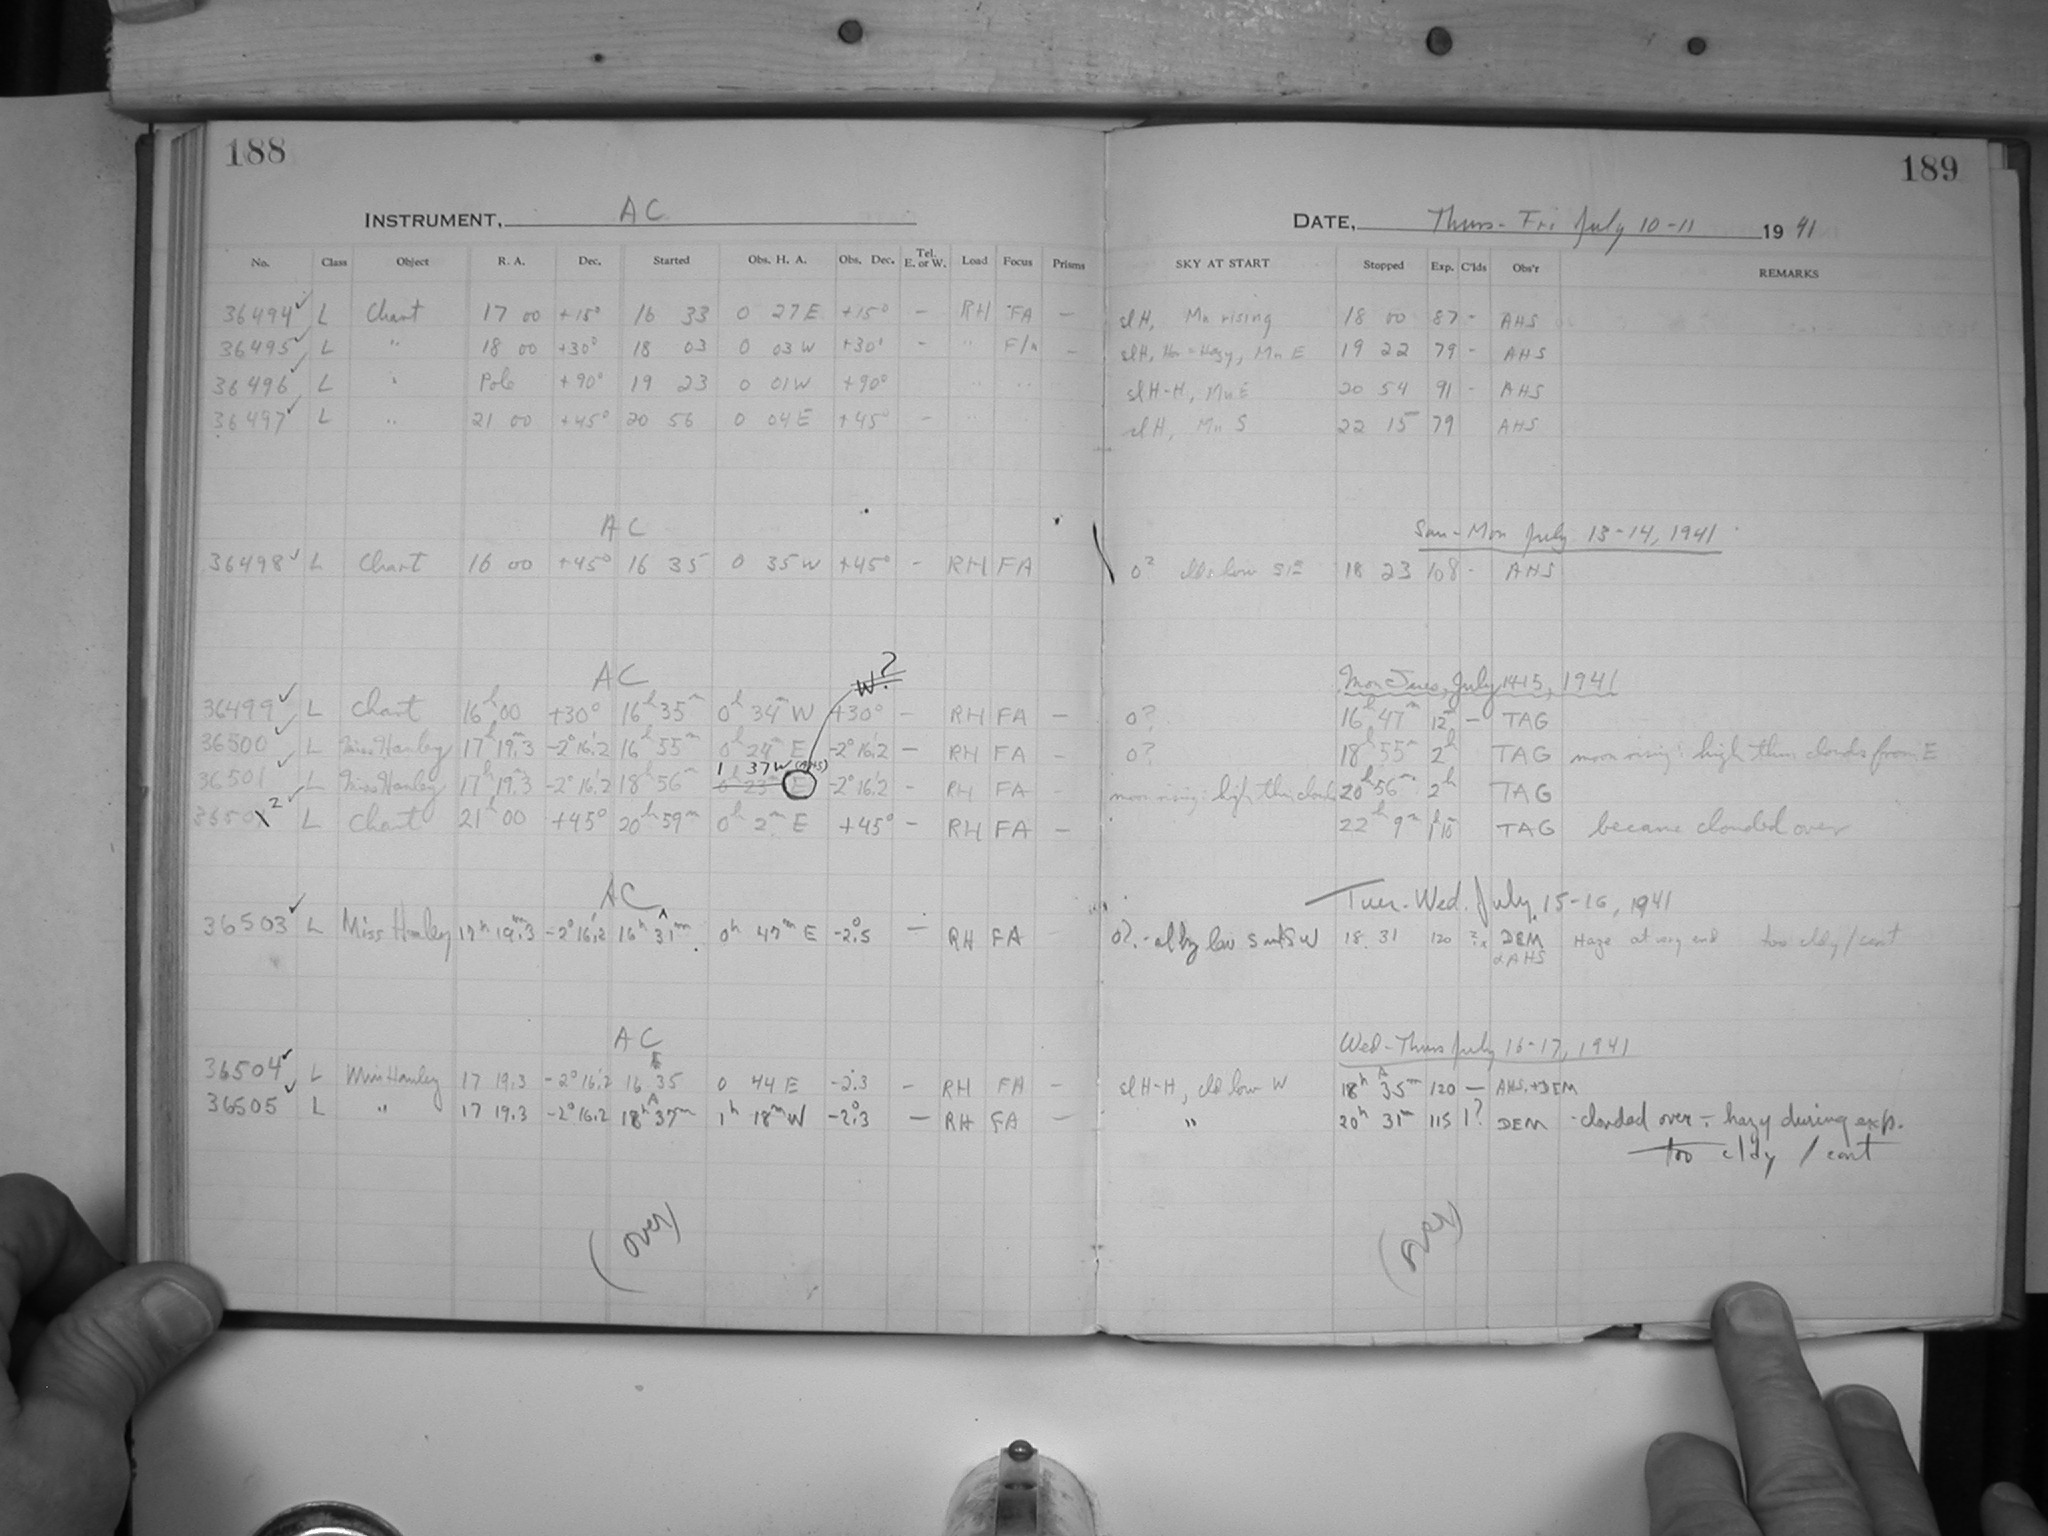 188
INSTRUMENT, AC
No. Class Object R. A. Dec. Started Obs. H. A. Obs. Dec. Tel. E. or W. Load Focus Prisms
36494 ✓ L Chart 17 00 +15° 16 33 0 27 E +15° - RH FA -
36495 ✓ L " 18 00 +30° 18 03 0 03 W +30° - " FA -
36496 ✓ L " Pole +90° 19 23 0 01 W +90° " "
36497 ✓ L " 21 00 +45° 20 56 0 04 E +45° - "
AC
36498 ✓ L Chart 16 00 +45° 16 35 0 35 W +45° - RH FA
AC W?
36499 ✓ L Chart 16h 00 +30° 16h 35m 0h 34m W +30° - RH FA -
36500 ✓ L Miss Hanley 17h 19m.3 -2° 16.'2 16h 55m 0h 24m E -2° 16.'2 - RH FA -
1 37 W (AHS)
36501 ✓ L Miss Hanley 17h 19m.3 -2° 16.'2 18h 56m 0h 23m E -2° 16.'2 - RH FA -
3650X2 ✓ L Chart 21h 00 +45° 20h 59m 0h 2m E +45° - RH FA -
AC
36503 ✓ L Miss Hanley 17h 19m.3 -2° 16.'2 16h 31m 0h 47m E -2°.5 - RH FA -
AC
36504 ✓ L Miss Hanley 17 19.3 -2° 16.'2 16 35 0 44 E -2°.3 - RH FA -
36505 ✓ L " 17 19.3 -2° 16.2 18h 37m 1h 18m W -2°.3 - RH FA -
(over)
189
DATE, Thurs - Fri July 10-11 1941
SKY AT START Stopped Exp. C'lds Obs'r REMARKS
sl H, Mn rising 18 00 87 - AHS
sl H, Hor = Hazy, Mn E 19 22 79 - AHS
sl H-H, Mn E 20 54 91 - AHS
sl H, Mn S 22 15 79 AHS
Sun-Mon July 13-14, 1941
0? clds low SE 18 23 108 - AHS
Mon-Tues, July 14-15, 1941
0? 16h 47m 12m - TAG
0? 18h 55m 2h TAG moon rising: high thin clouds from E
moon rising: high thin clouds 20h 56m 2h TAG
22h 9m 1h 10m TAG became clouded over
Tues-Wed. July 15-16, 1941
0?. low S and SW 18 31 120 DEM & AHS Haze at very end too cldy / cont
Wed-Thurs July 16-17, 1941
sl H-H, cld low W 18h 35m 120 - AHS + DEM
" 20h 31m 115 1? DEM -clouded over - hazy during exp.
too cldy / cont
(over)